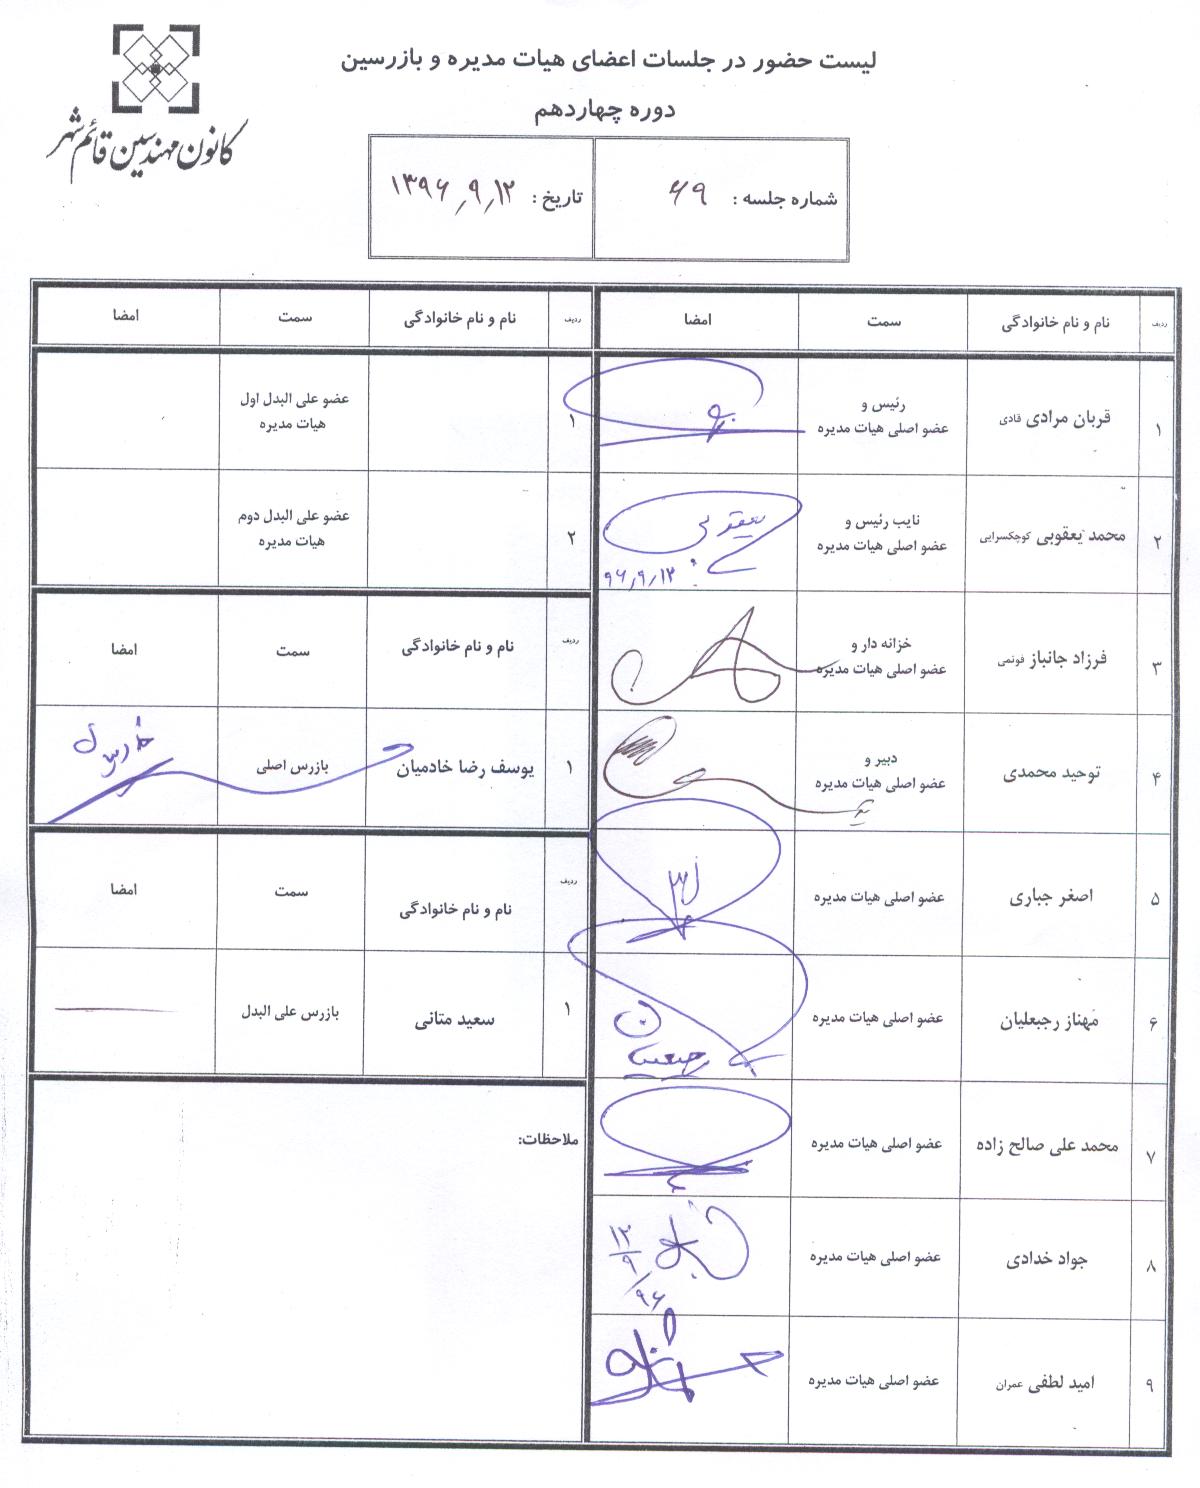 کانون مهندسین قائم شهر
لیست حضور در جلسات اعضای هیات مدیره و بازرسین
دوره چهاردهم
شماره جلسه : ۶۹
تاریخ : ۱۳۹۶٫۹٫۱۲
ردیف نام و نام خانوادگی سمت امضا
۱ قربان مرادی قادی رئیس و
عضو اصلی هیات مدیره
۲ محمد یعقوبی کوچکسرایی نایب رئیس و
عضو اصلی هیات مدیره یعقوبی
۹۶٫۹٫۱۲
۳ فرزاد جانباز فوتمی خزانه دار و
عضو اصلی هیات مدیره
۴ توحید محمدی دبیر و
عضو اصلی هیات مدیره
۵ اصغر جباری عضو اصلی هیات مدیره
۶ مهناز رجبعلیان عضو اصلی هیات مدیره
۷ محمد علی صالح زاده عضو اصلی هیات مدیره
۸ جواد خدادی عضو اصلی هیات مدیره ۱۲/۹/۹۶
۹ امید لطفی عمران عضو اصلی هیات مدیره
ردیف نام و نام خانوادگی سمت امضا
۱ عضو علی البدل اول
هیات مدیره
۲ عضو علی البدل دوم
هیات مدیره
ردیف نام و نام خانوادگی سمت امضا
۱ یوسف رضا خادمیان بازرس اصلی
ردیف نام و نام خانوادگی سمت امضا
۱ سعید متانی بازرس علی البدل
ملاحظات: